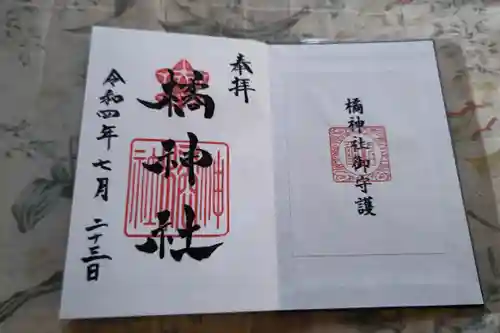 奉拝
橘神社
令和四年 七月 二十三日
橘神社御守護